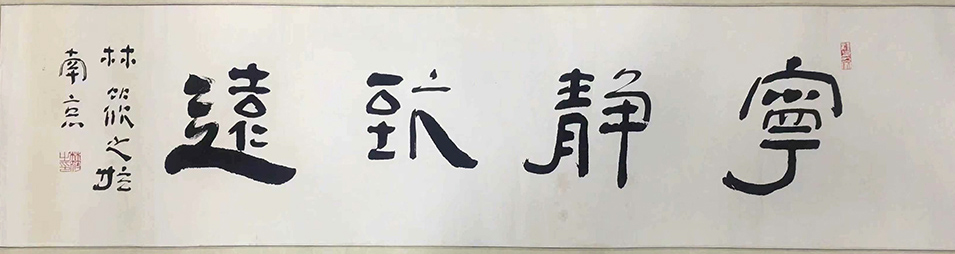 寧静致遠
林筱之於
南京